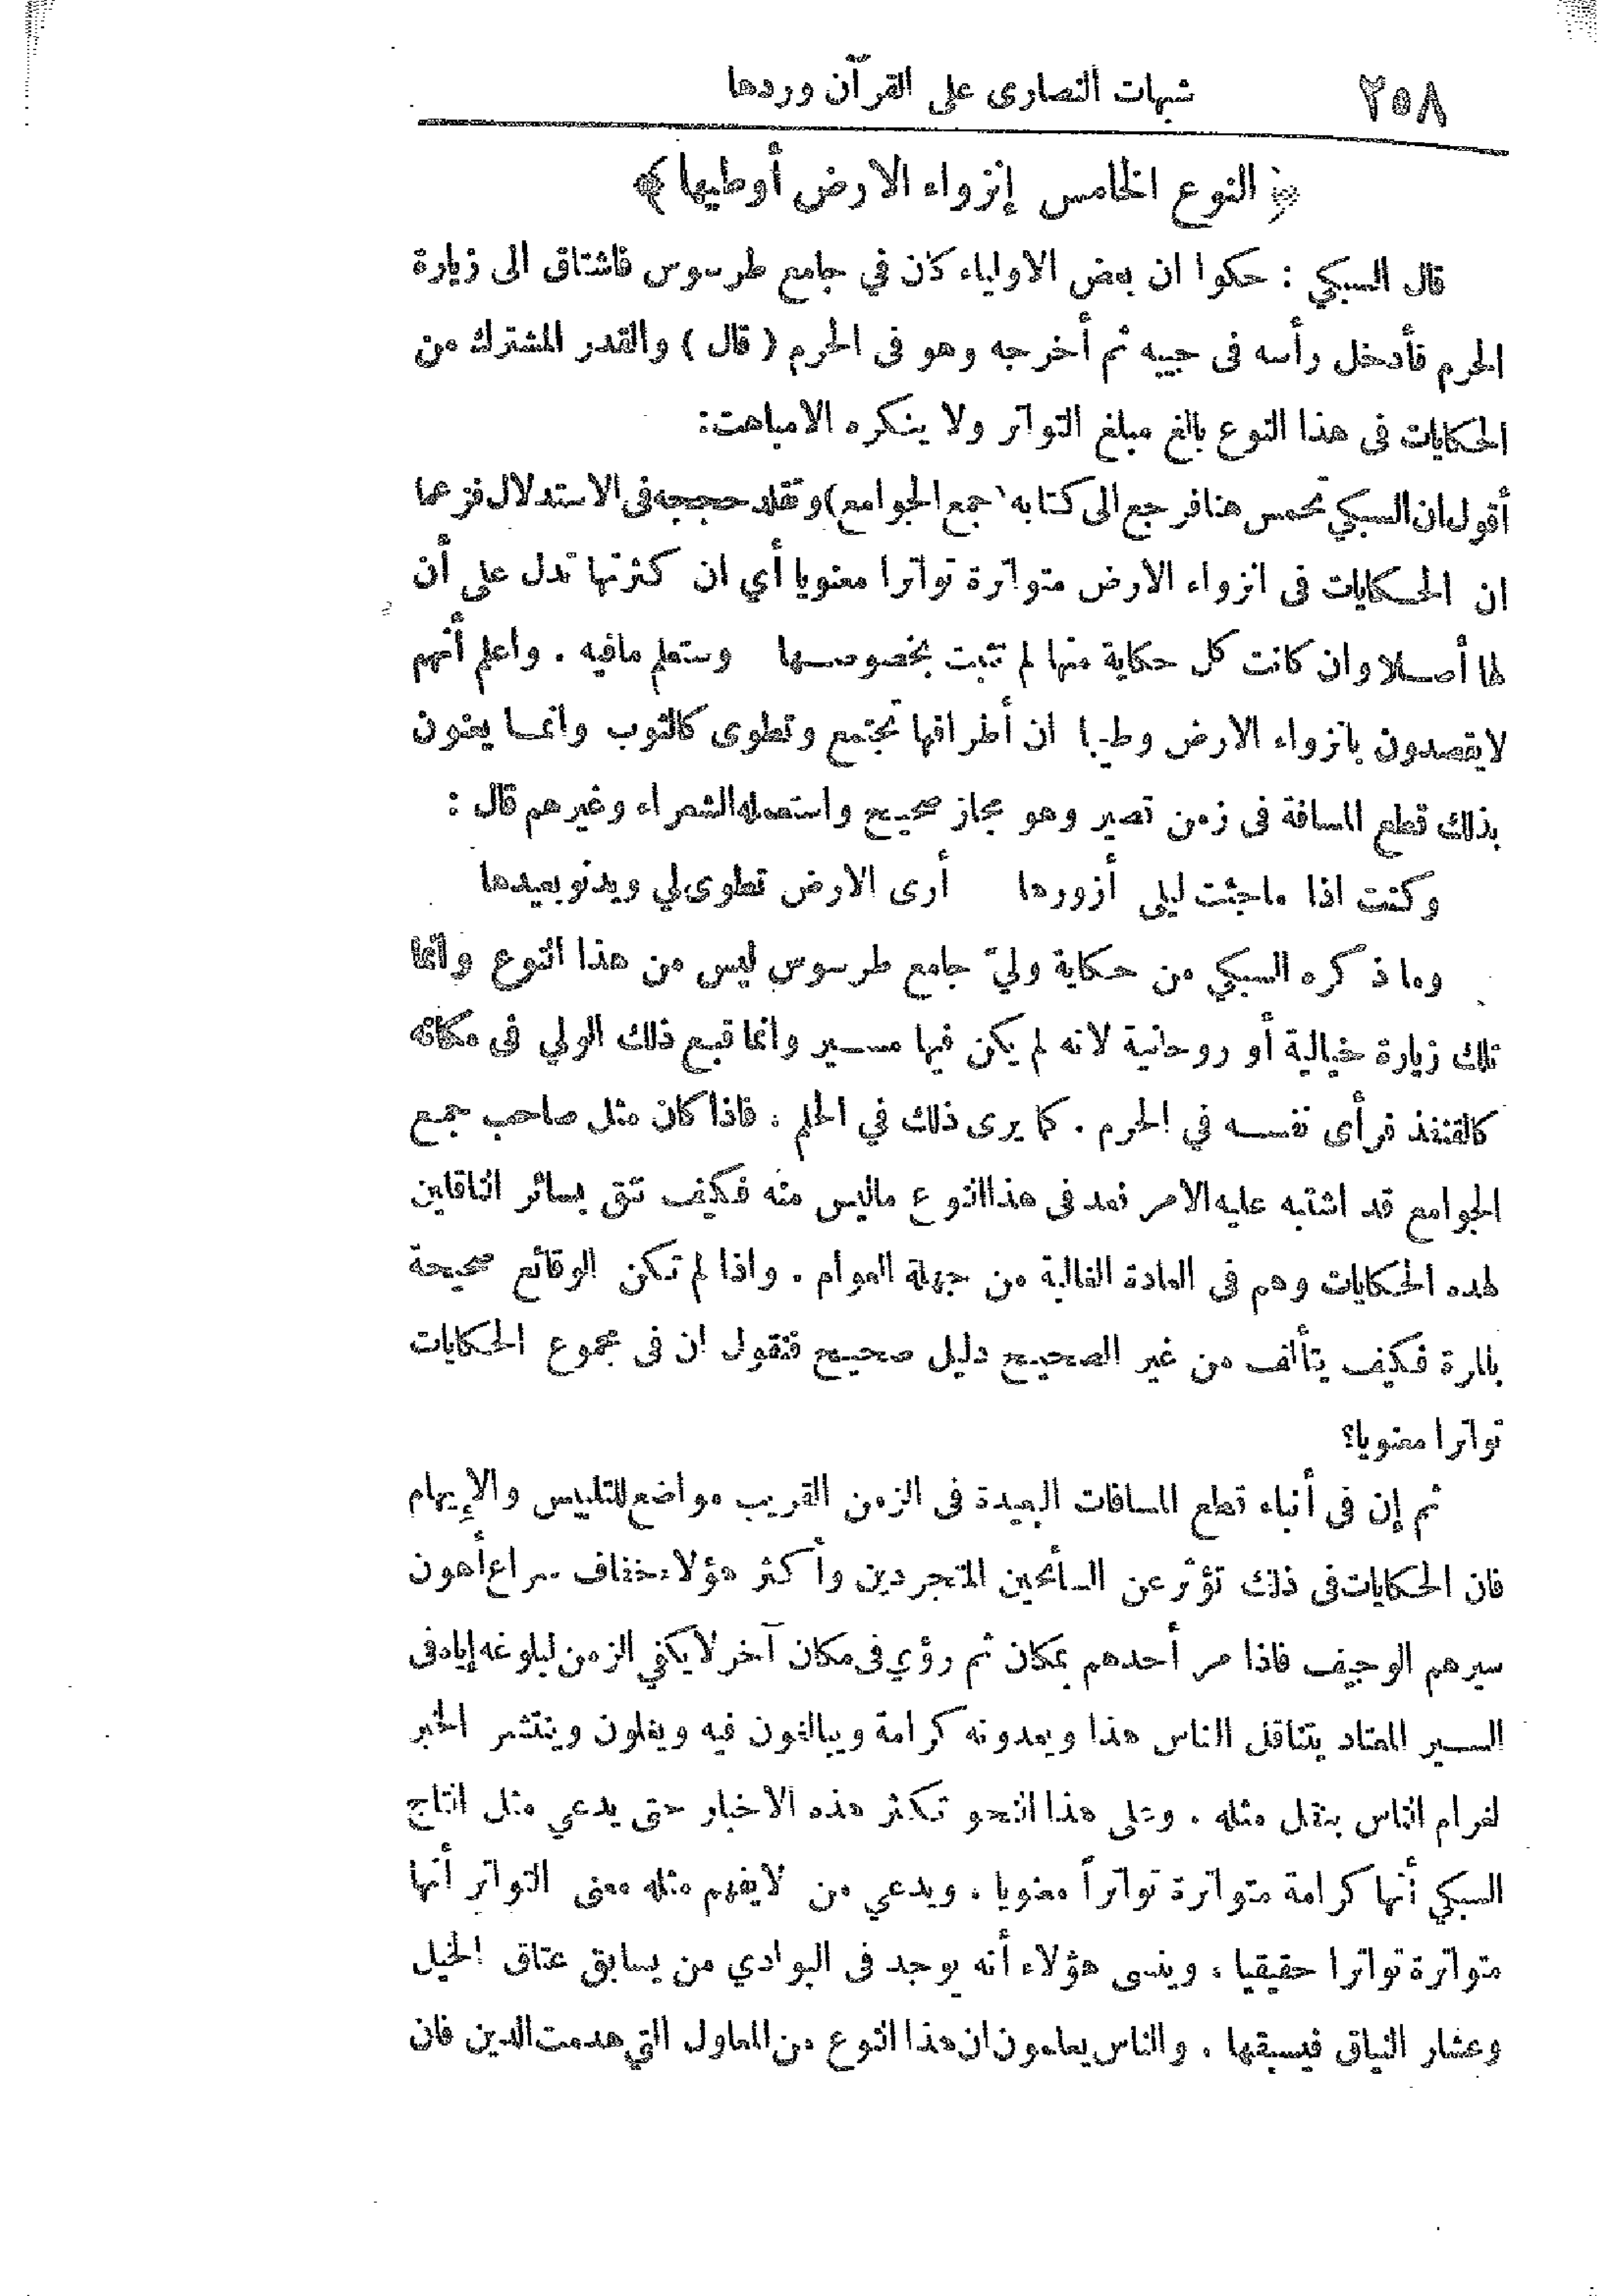 ٢٥٨ شبهات النصارى على القرآن وردها
﴿ النوع الخامس إنزواء الارض أوطيها ﴾
قال السبكي : حكوا ان بعض الاولياء كان في جامع طرسوس فاشتاق الى زيارة
الحرم فأدخل رأسه فى جيبه ثم أخرجه وهو فى الحرم ( قال ) والقدر المشترك من
الحكايات فى هذا النوع بالغ مبلغ التواتر ولا ينكره الامباهت:
أقول ان السبكي تحمس هنا فرجع الى كتابه (جمع الجوامع) وتقلد حججه فى الاستدلال فزعما
ان الحكايات فى انزواء الارض متواترة تواترا معنويا أي ان كثرتها تدل على أن
لها أصلا وان كانت كل حكاية منها لم تثبت بخصوصها وستعلم مافيه . واعلم أنهم
لايقصدون بانزواء الارض وطيها ان أطرافها تجتمع وتطوى كالثوب وانما يعنون
بذلك قطع المسافة فى زمن قصير وهو مجاز صحيح واستعمله الشعراء وغيرهم قال :
وكنت اذا ماجئت ليلى أزورها أرى الارض تطوى لي ويدنو بعيدها
وما ذكره السبكي من حكاية وليّ جامع طرسوس ليس من هذا النوع وانما
تلك زيارة خيالية أو روحانية لانه لم يكن فيها مسير وانما قبع ذلك الولي فى مكانه
كالقنفذ فرأى نفسه في الحرم . كما يرى ذلك في الحلم . فاذا كان مثل صاحب جمع
الجوامع قد اشتبه عليه الامر فعد فى هذا النوع ماليس منه فكيف تثق بسائر الناقلين
لهذه الحكايات وهم فى العادة الغالبة من جهلة العوام . واذا لم تكن الوقائع صحيحة
بالمرة فكيف يتألف من غير الصحيح دليل صحيح فنقول ان فى مجموع الحكايات
تواترا معنويا؟
ثم إن فى أنباء قطع المسافات البعيدة فى الزمن القريب مواضع للتلبيس والإيهام
فان الحكايات فى ذلك تؤثر عن السائحين المتجردين وأكثر هؤلاء خفاف سراع أهون
سيرهم الوجيف فاذا مر أحدهم بمكان ثم رؤي فى مكان آخر لايكفي الزمن لبلوغه إياه فى
السير المعتاد يتناقل الناس هذا ويعدونه كرامة ويبالغون فيه ويغلون وينتشر الخبر
لغرام الناس بنقل مثله . وعلى هذا النحو تكثر هذه الاخبار حتى يدعي مثل التاج
السبكي أنها كرامة متواترة تواتراً معنويا . ويدعي من لايفهم مثله معنى التواتر أنها
متواترة تواترا حقيقيا . وينسى هؤلاء أنه يوجد فى البوادي من يسابق عتاق الخيل
وعشار النياق فيسبقها . والناس يعلمون ان هذا النوع من المعاول التي هدمت الدين فان